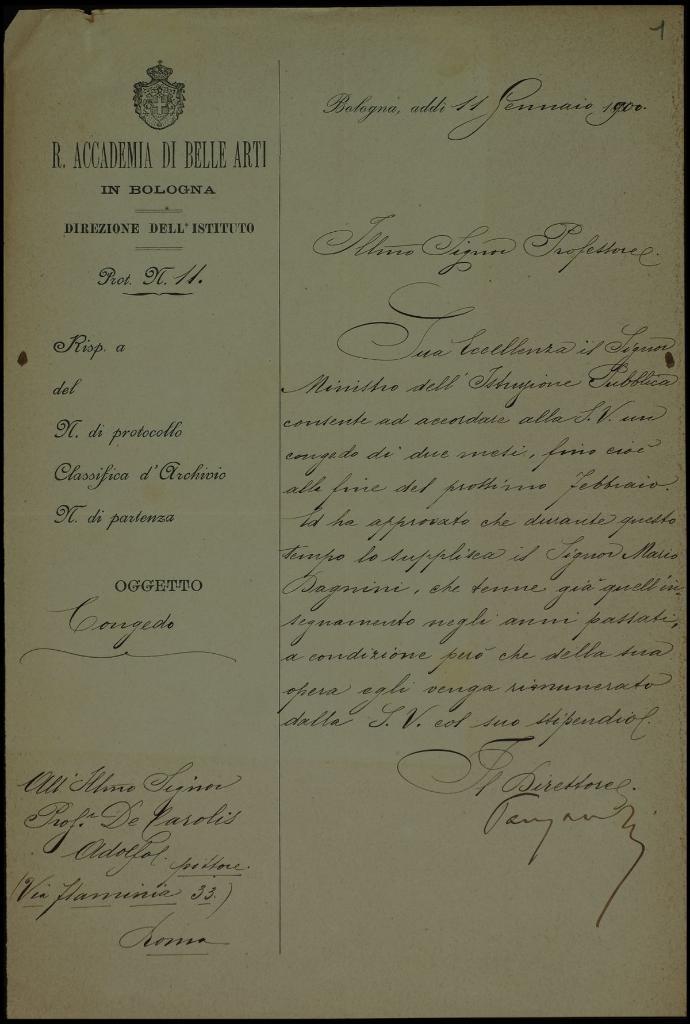 1
R. ACCADEMIA DI BELLE ARTI
IN BOLOGNA
DIREZIONE DELL'ISTITUTO
Prot. N. 11.
Risp. a
del
N. di protocollo
Classifica d'Archivio
N. di partenza
OGGETTO
Congedo
All' Illmo Signor
Prof.r De Carolis
Adolfo pittore
(Via Flaminia 33.)
Roma
Bologna, addì 11 Gennaio 1900.
Illmo Signor Professore.
Sua Eccellenza il Signor
Ministro dell'Istruzione Pubblica
consente ad accordare alla S. V. un
congedo di due mesi, fino cioè
alla fine del prossimo Febbraio.
Ed ha approvato che durante questo
tempo lo supplisca il Signor Mario
Dagnini, che tenne già quell'in-
segnamento negli anni passati,
a condizione però che della sua
opera egli venga rimunerato
dalla S. V. col suo stipendio.
Il Direttore.